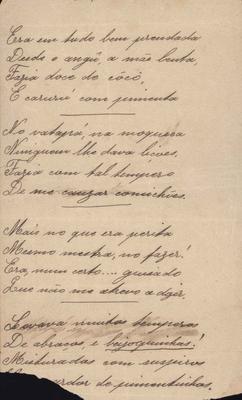 Era em tudo bem prendada
Desde o angú, a mãe benta,
Fazia doce de côcô,
E carurú com pimenta
No vatapá, na moqueca
Ninguem lhe dava licões.
Fazia com tal têmpero
De me cauzar comichões.
Mais no que era perita
Mesmo mestra, no fazer!
Era, num certo.... guisado
Que não me atrevo a dizer.
Levava muitos temperos
De abraços, e beijoquinhas!
Misturadas com suspiros
ardor de pimentinhas.